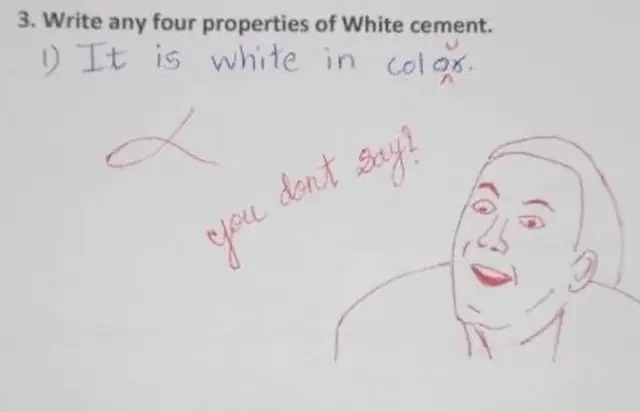 3. Write any four properties of White cement.
1) It is white in color.
u
you dont say?